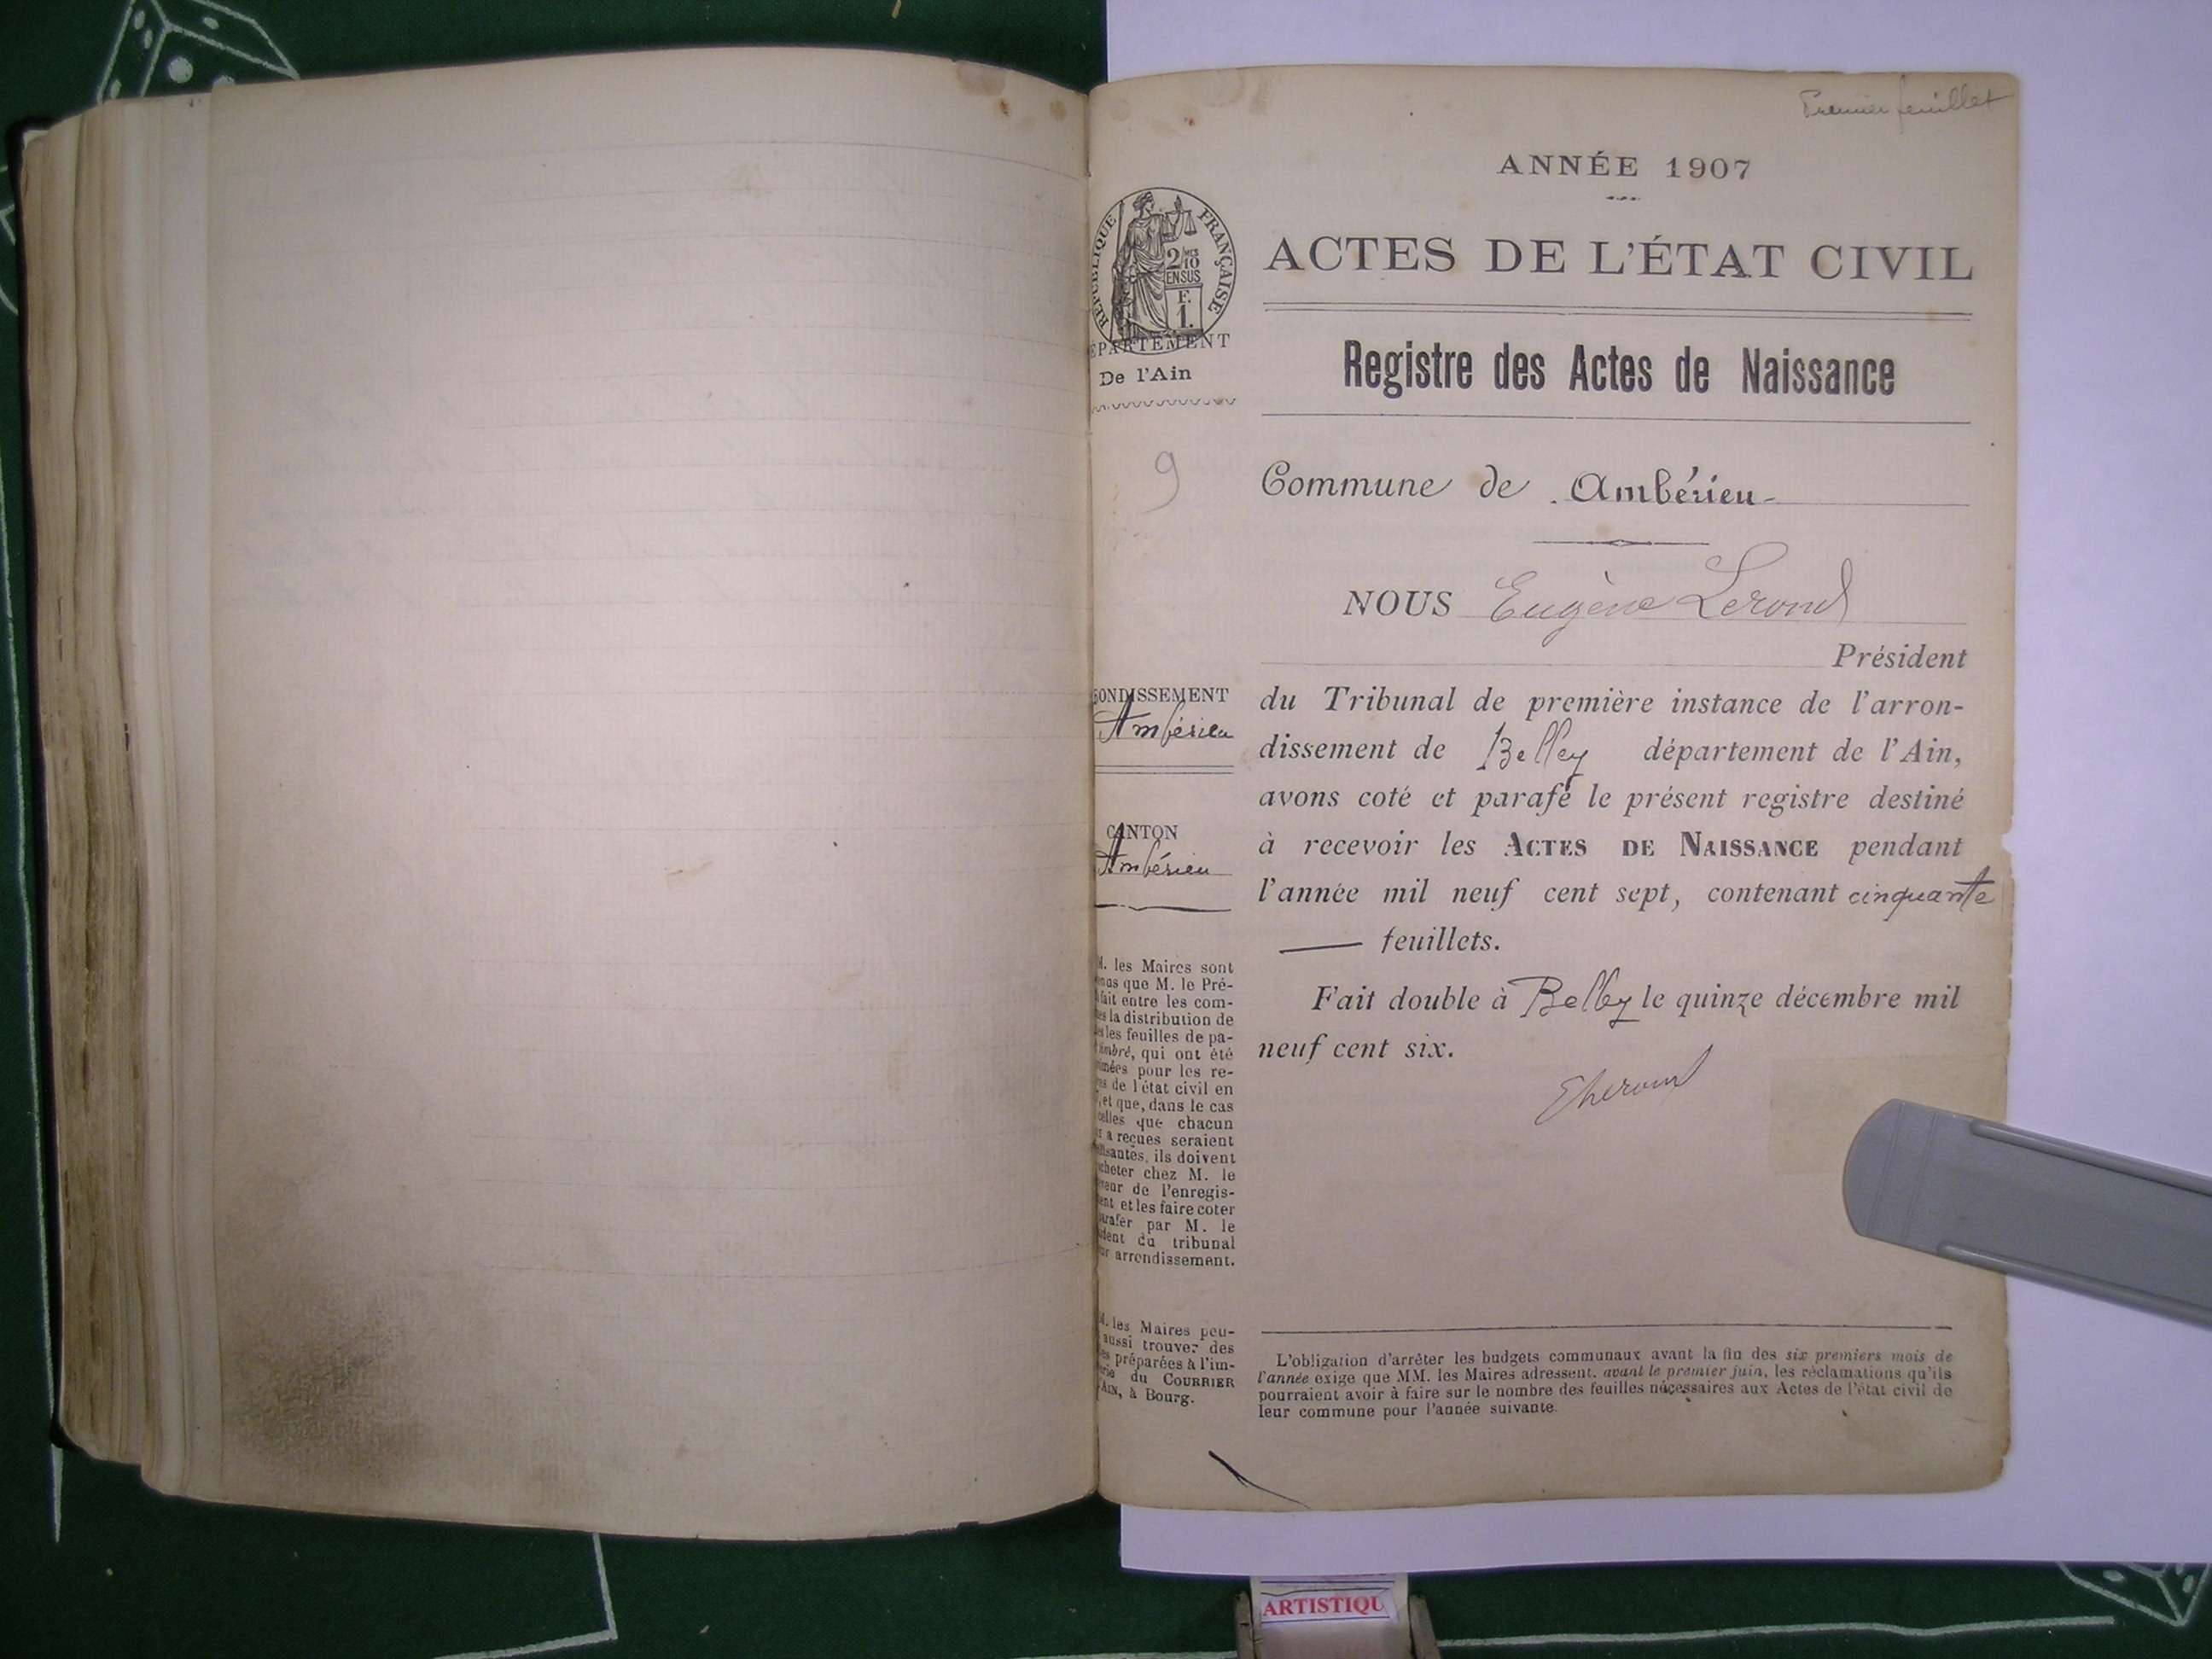 Premier feuillet
ANNÉE 1907
RÉPUBLIQUE FRANÇAISE
2/10
EN SUS
F.
1.
ÉPARTEMENT
De l'Ain
ACTES DE L'ÉTAT CIVIL
Registre des Actes de Naissance
9
Commune de Ambérieu
NOUS Eugène Lerond
Président
du Tribunal de première instance de l'arron-
dissement de Belley département de l'Ain,
avons coté et parafé le présent registre destiné
à recevoir les ACTES DE NAISSANCE pendant
l'année mil neuf cent sept, contenant cinquante
— feuillets.
Fait double à Belley le quinze décembre mil
neuf cent six.
ONDISSEMENT
Ambérieu
CANTON
Ambérieu
M. les Maires sont
que M. le Pré-
fait entre les com-
la distribution de
les feuilles de pa-
timbré, qui ont été
pour les re-
de l'état civil en
et que, dans le cas
celles que chacun
a reçues seraient
ils doivent
acheter chez M. le
de l'enregis-
et les faire coter
parafer par M. le
du tribunal
arrondissement.
M. les Maires peu-
aussi trouver des
préparées à l'im-
du COURRIER
AIN, à Bourg.
L'obligation d'arrêter les budgets communaux avant la fin des six premiers mois de
l'année exige que MM. les Maires adressent, avant le premier juin, les réclamations qu'ils
pourraient avoir à faire sur le nombre des feuilles nécessaires aux Actes de l'état civil de
leur commune pour l'année suivante.
ARTISTIQU